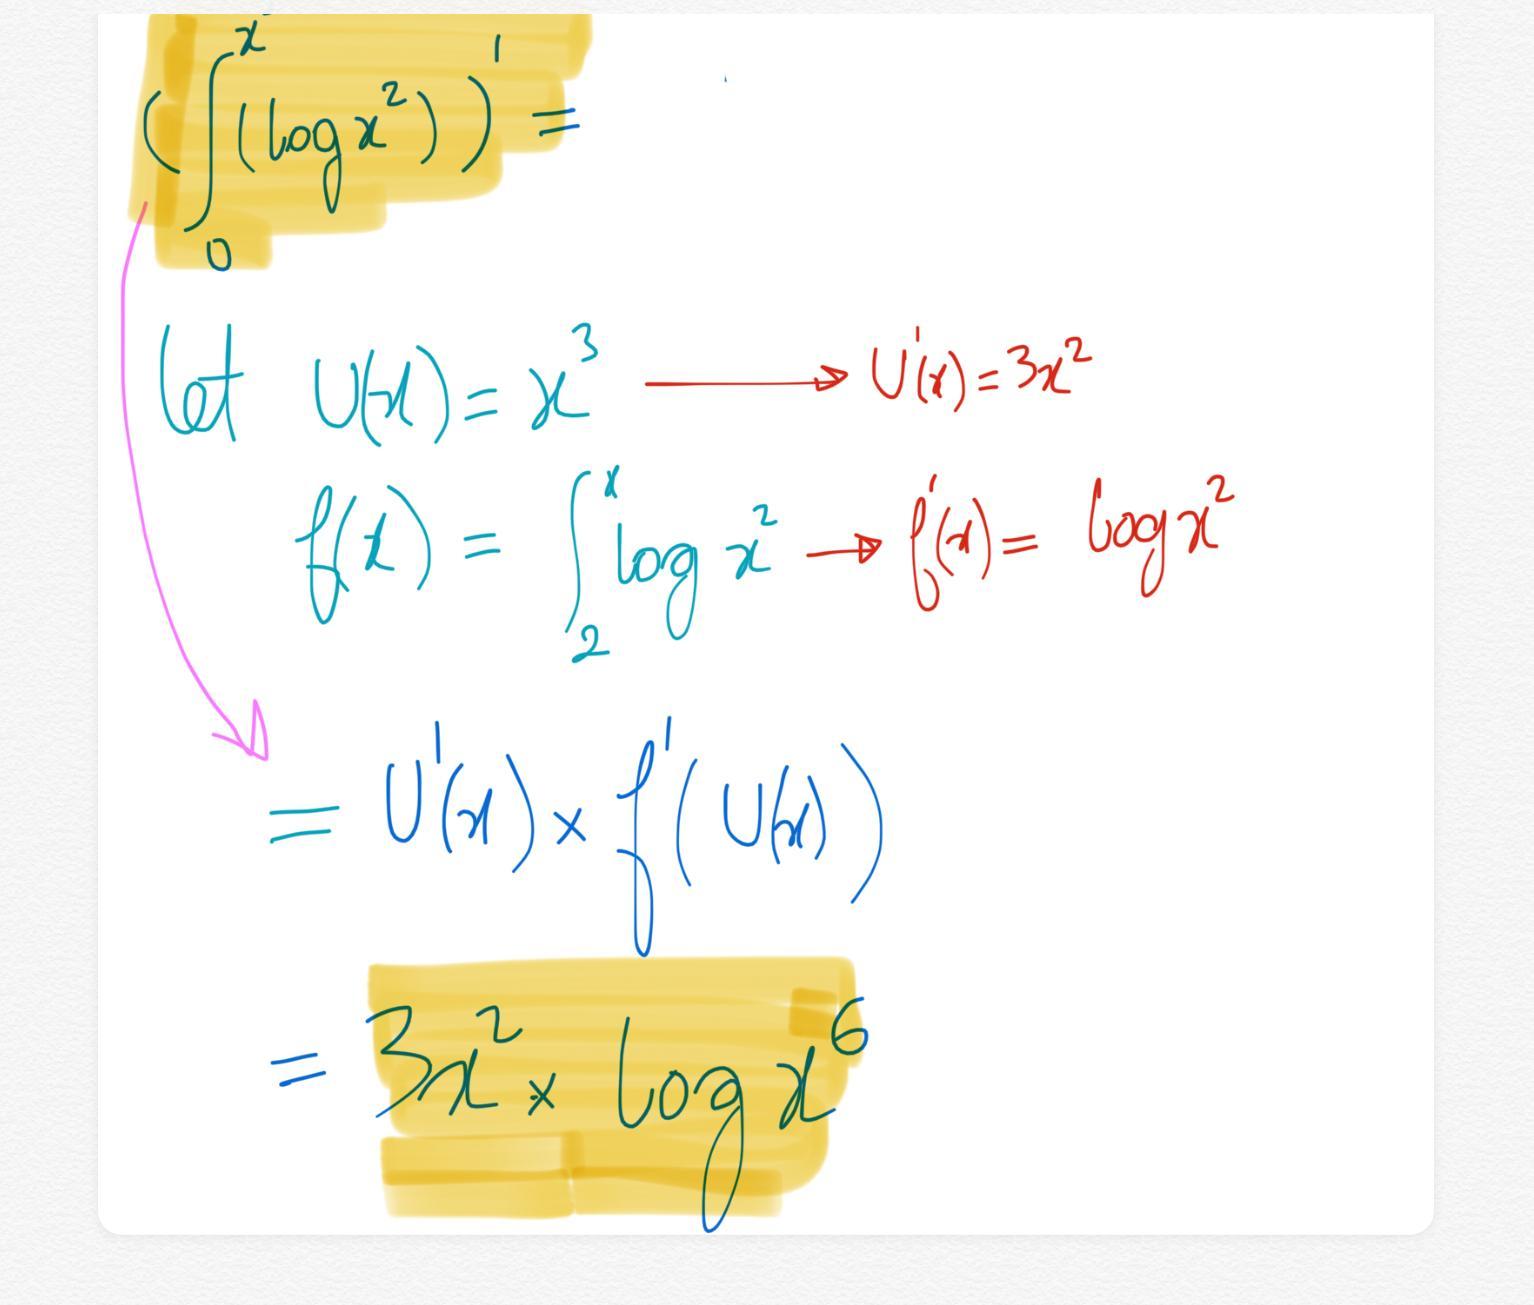 (∫₀ˣ (log x²))' =
let U(x) = x³ → U'(x) = 3x²
f(x) = ∫₂ˣ log x² → f'(x) = log x²
= U'(x) × f'(U(x))
= 3x² × log x⁶